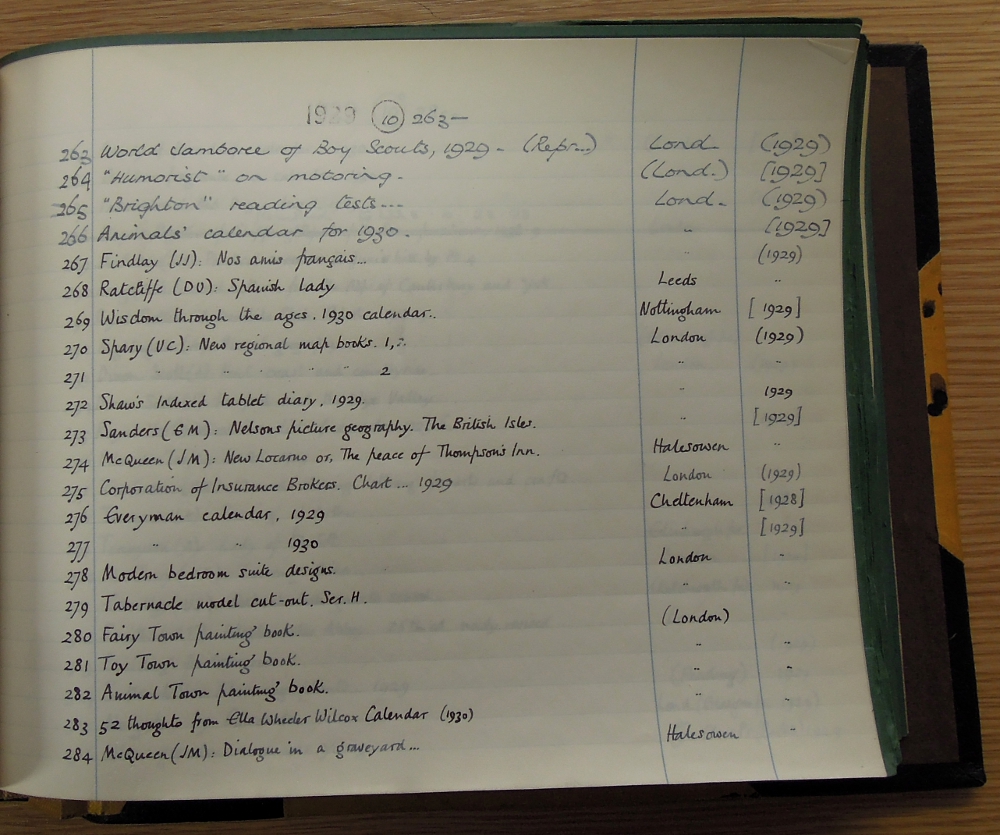 1929 (10) 263—
263 World Jamboree of Boy Scouts, 1929 - (Repr...) Lond. (1929)
264 "Humorist" on motoring. (Lond.) [1929]
265 "Brighton" reading tests... Lond. (1929)
266 Animals' calendar for 1930. " [1929]
267 Findlay (JJ): Nos amis français... " (1929)
268 Ratcliffe (DU): Spanish lady Leeds "
269 Wisdom through the ages. 1930 calendar.. Nottingham [1929]
270 Spary (VC): New regional map books. 1, London (1929)
271 " " " " " 2 " "
272 Shaw's Indexed tablet diary, 1929. " 1929
273 Sanders (EM): Nelsons picture geography. The British Isles. " [1929]
274 McQueen (JM): New Locarno or, The peace of Thompson's Inn. Halesowen "
275 Corporation of Insurance Brokers. Chart ... 1929 London (1929)
276 Everyman calendar, 1929 Cheltenham [1928]
277 " " 1930 " [1929]
278 Modern bedroom suite designs. London "
279 Tabernacle model cut-out. Ser. H. " "
280 Fairy Town painting book. (London)
281 Toy Town painting book. " "
282 Animal Town painting book. " "
283 52 thoughts from Ella Wheeler Wilcox Calendar (1930) " "
284 McQueen (JM): Dialogue in a graveyard... Halesowen "